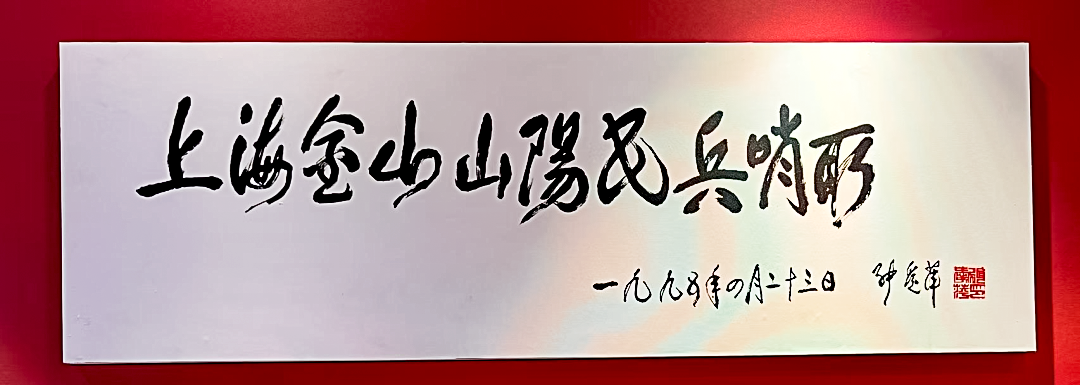 上海金山山陽民兵哨所
一九九五年四月二十三日 張愛萍